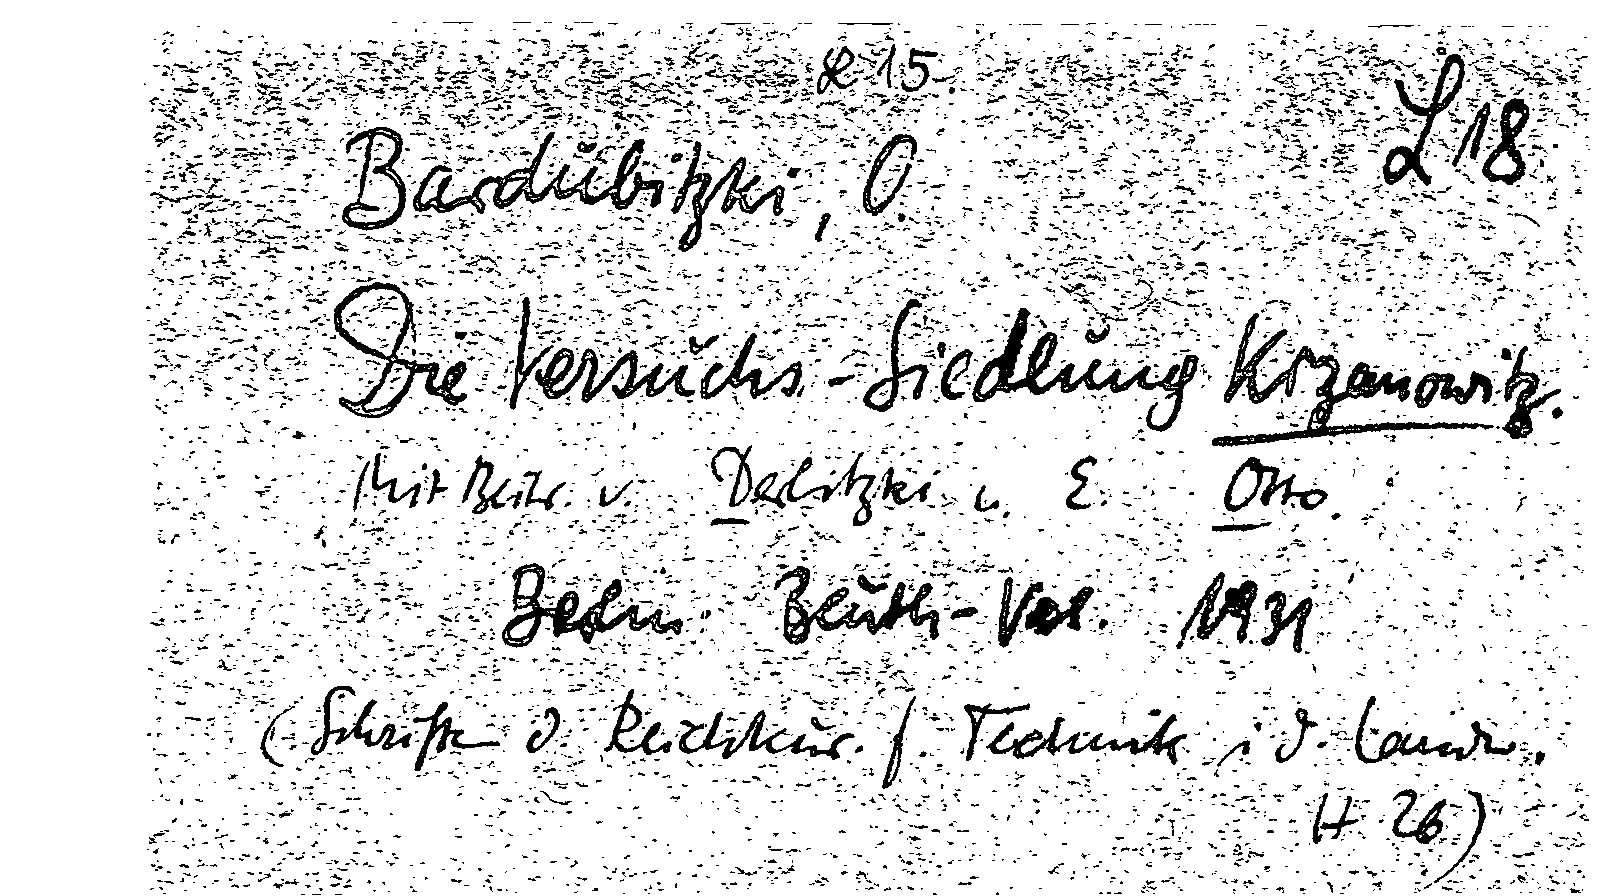 L 15.
L 18
Bardubitzki, O.
Die Versuchs-Siedlung Krzanowitz.
Mit Beitr. v. Derlitzki u. E. Otto.
Berlin: Beuth-Verl. 1931
(Schriften d. Reichskur. f. Technik i. d. Landw.
H 26)